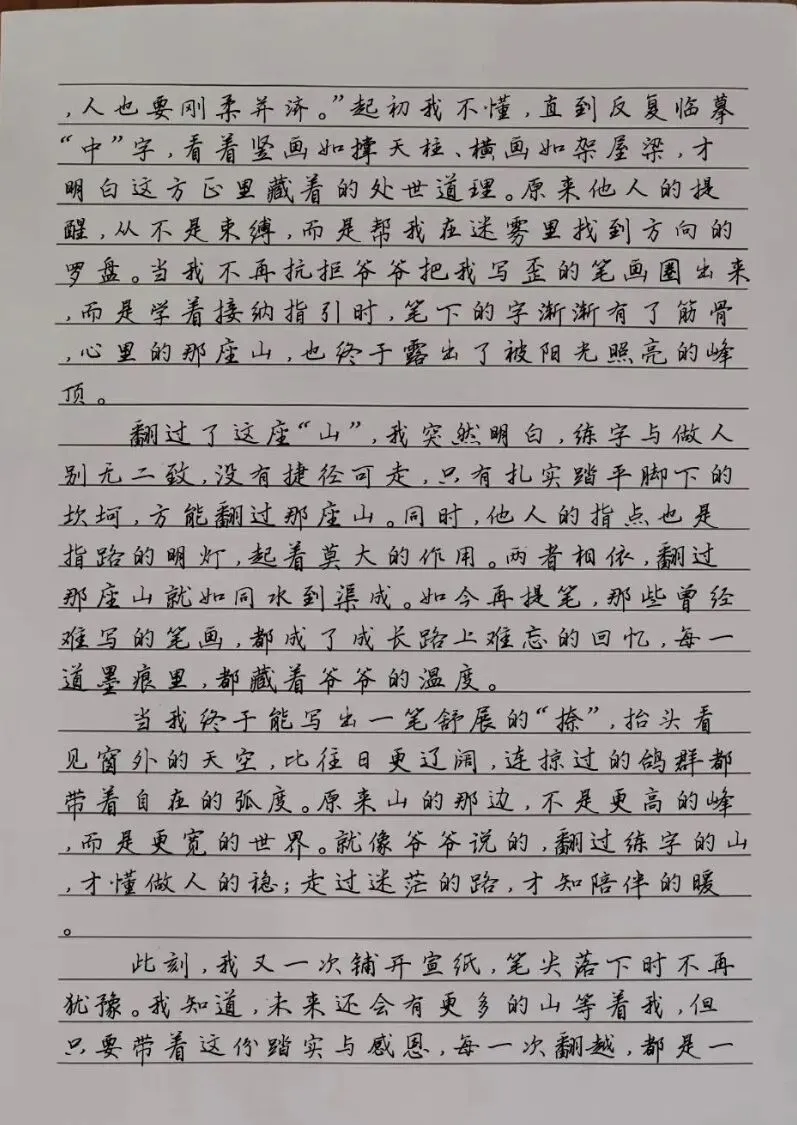 ，人也要刚柔并济。”起初我不懂，直到反复临摹
“中”字，看着竖画如撑天柱、横画如架屋梁，才
明白这方正里藏着的处世道理。原来他人的提
醒，从不是束缚，而是帮我在迷雾里找到方向的
罗盘。当我不再抗拒爷爷把我写歪的笔画圈出来
，而是学着接纳指引时，笔下的字渐渐有了筋骨
，心里的那座山，也终于露出了被阳光照亮的峰
顶。
翻过了这座“山”，我突然明白，练字与做人
别无二致，没有捷径可走，只有扎实踏平脚下的
坎坷，方能翻过那座山。同时，他人的指点也是
指路的明灯，起着莫大的作用。两者相依，翻过
那座山就如同水到渠成。如今再提笔，那些曾经
难写的笔画，都成了成长路上难忘的回忆，每一
道墨痕里，都藏着爷爷的温度。
当我终于能写出一笔舒展的“捺”，抬头看
见窗外的天空，比往日更辽阔，连掠过的鸽群都
带着自在的弧度。原来山的那边，不是更高的峰
，而是更宽的世界。就像爷爷说的，翻过练字的山
，才懂做人的稳；走过迷茫的路，才知陪伴的暖
。
此刻，我又一次铺开宣纸，笔尖落下时不再
犹豫。我知道，未来还会有更多的山等着我，但
只要带着这份踏实与感恩，每一次翻越，都是一